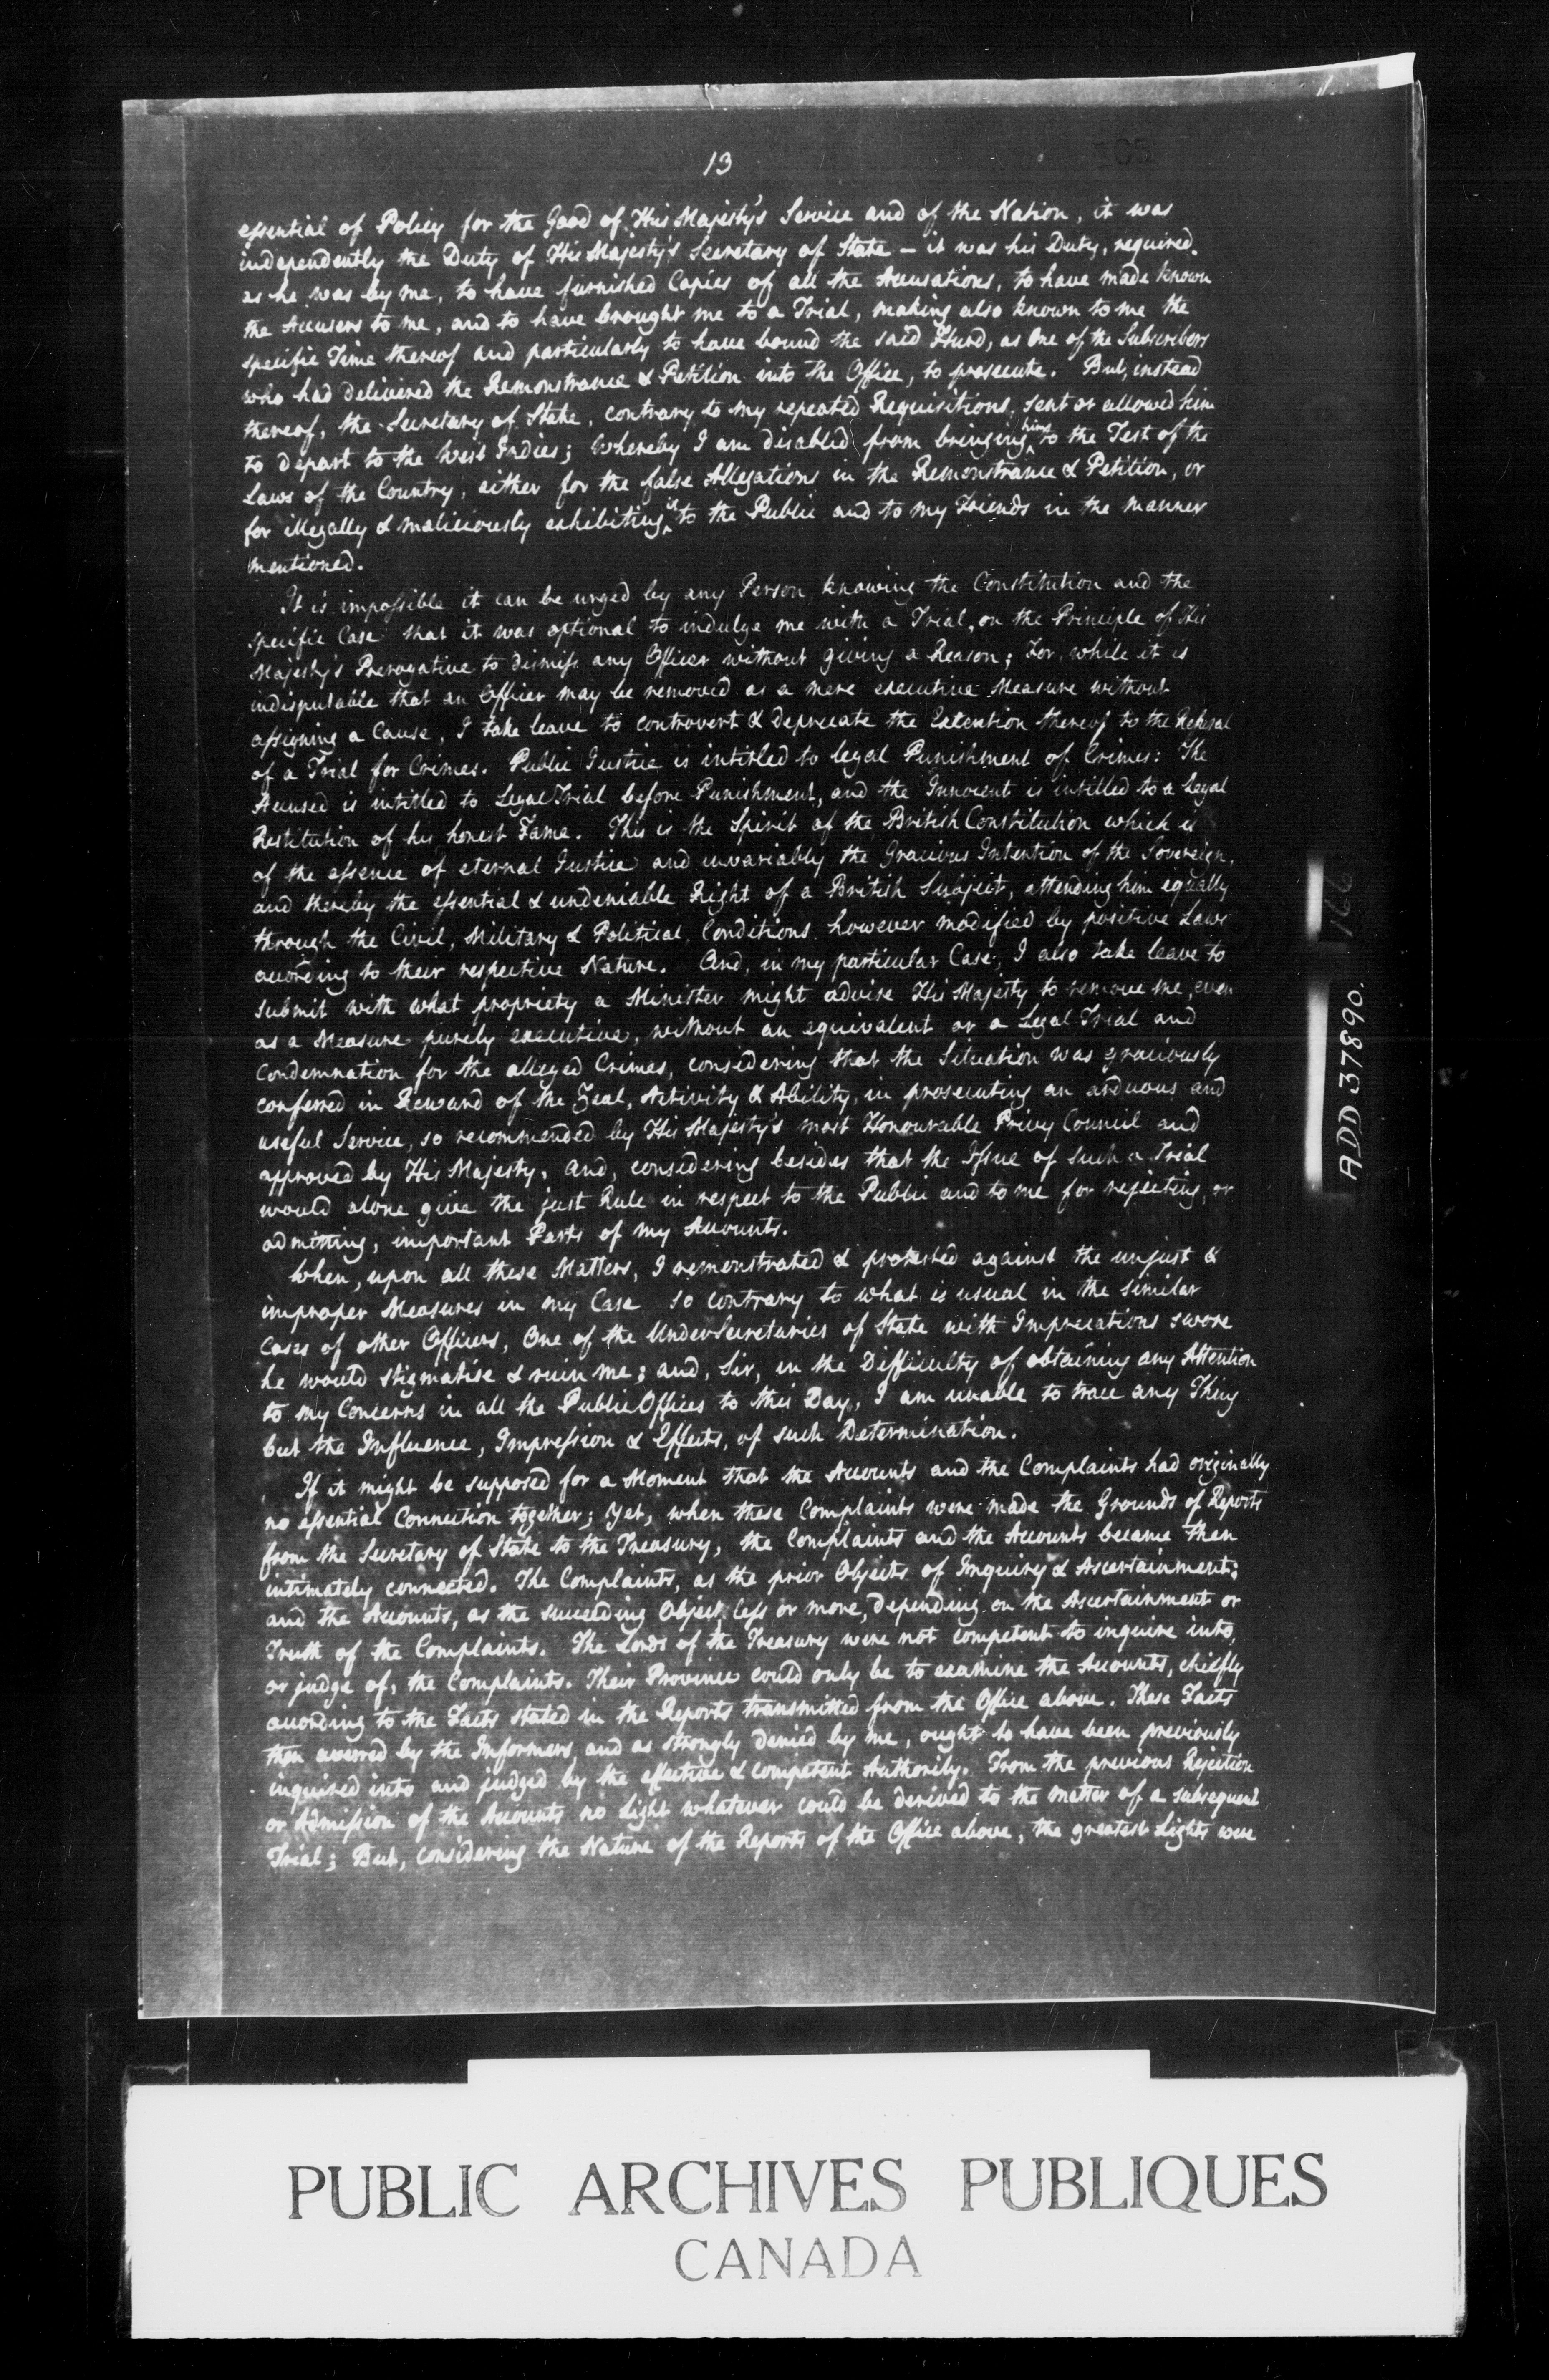 13
105
essential of Policy for the Good of His Majesty's Service and of the Nation, it was
independently the Duty of His Majesty's Secretary of State — it was his Duty, required
as he was by me, to have furnished Copies of all the Accusations, to have made known
the Accusers to me, and to have brought me to a Trial, making also known to me the
specific Time thereof and particularly to have bound the said Hurd, as One of the Subscribers
who had delivered the Remonstrance & Petition into the Office, to prosecute. But, instead
thereof, the Secretary of State, contrary to my repeated Requisitions, sent or allowed him
to depart to the West Indies; Whereby I am disabled from bringing him to the Test of the
Laws of the Country, either for the false Allegations in the Remonstrance & Petition, or
for illegally & maliciously exhibiting it to the Public and to my Friends in the manner
mentioned.
It is impossible it can be urged by any Person knowing the Constitution and the
specific Case that it was optional to indulge me with a Trial, on the Principle of His
Majesty's Prerogative to dismiss any Officer without giving a Reason; For, while it is
indisputable that an Officer may be removed as a mere executive Measure without
assigning a Cause, I take leave to controvert & deprecate the Extention thereof to the Refusal
of a Trial for Crimes. Public Justice is intitled to legal Punishment of Crimes: The
Accused is intitled to Legal Trial before Punishment, and the Innocent is intitled to a Legal
Restitution of his honest Fame. This is the Spirit of the British Constitution which is
of the essence of eternal Justice and invariably the Gracious Intention of the Sovereign,
and thereby the essential & undeniable Right of a British Subject, attending him equally
through the Civil, Military & Political Conditions however modified by positive Laws
according to their respective Nature. And, in my particular Case, I also take leave to
submit with what propriety a Minister might advise His Majesty to remove me, even
as a Measure purely executive, without an equivalent or a Legal Trial and
Condemnation for the alleged Crimes, considering that the Situation was graciously
conferred in Reward of the Zeal, Activity & Ability, in prosecuting an arduous and
useful Service, so recommended by His Majesty's most Honourable Privy Council and
approved by His Majesty. And, considering besides that the Issue of such a Trial
would alone give the just Rule in respect to the Public and to me for rejecting, or
admitting, important Parts of my Accounts.
When, upon all these Matters, I remonstrated & protested against the unjust &
improper Measures in my Case so contrary to what is usual in the similar
Cases of other Officers, One of the UnderSecretaries of State with Imprecations swore
he would stigmatise & ruin me; and, Sir, in the Difficulty of obtaining any Attention
to my Concerns in all the Public Offices to this Day, I am unable to trace any Thing
but the Influence, Impression & Effects, of such Determination.
If it might be supposed for a Moment that the Accounts and the Complaints had originally
no essential Connection together; Yet, when these Complaints were made the Grounds of Reports
from the Secretary of State to the Treasury, the Complaints and the Accounts became then
intimately connected. The Complaints, as the prior Objects of Inquiry & Ascertainment;
and the Accounts, as the succeeding Object, less or more, depending on the Ascertainment or
Truth of the Complaints. The Lords of the Treasury were not competent to inquire into,
or judge of, the Complaints. Their Province could only be to examine the Accounts, chiefly
according to the Facts stated in the Reports transmitted from the Office above. These Facts
then averred by the Informers, and as strongly denied by me, ought to have been previously
inquired into and judged by the effective & competent Authority. From the previous Rejection
or Admission of the Accounts no Light whatever could be derived to the matter of a subsequent
Trial; But, considering the Nature of the Reports of the Office above, the greatest Lights were
166
ADD 37890.
PUBLIC ARCHIVES PUBLIQUES
CANADA